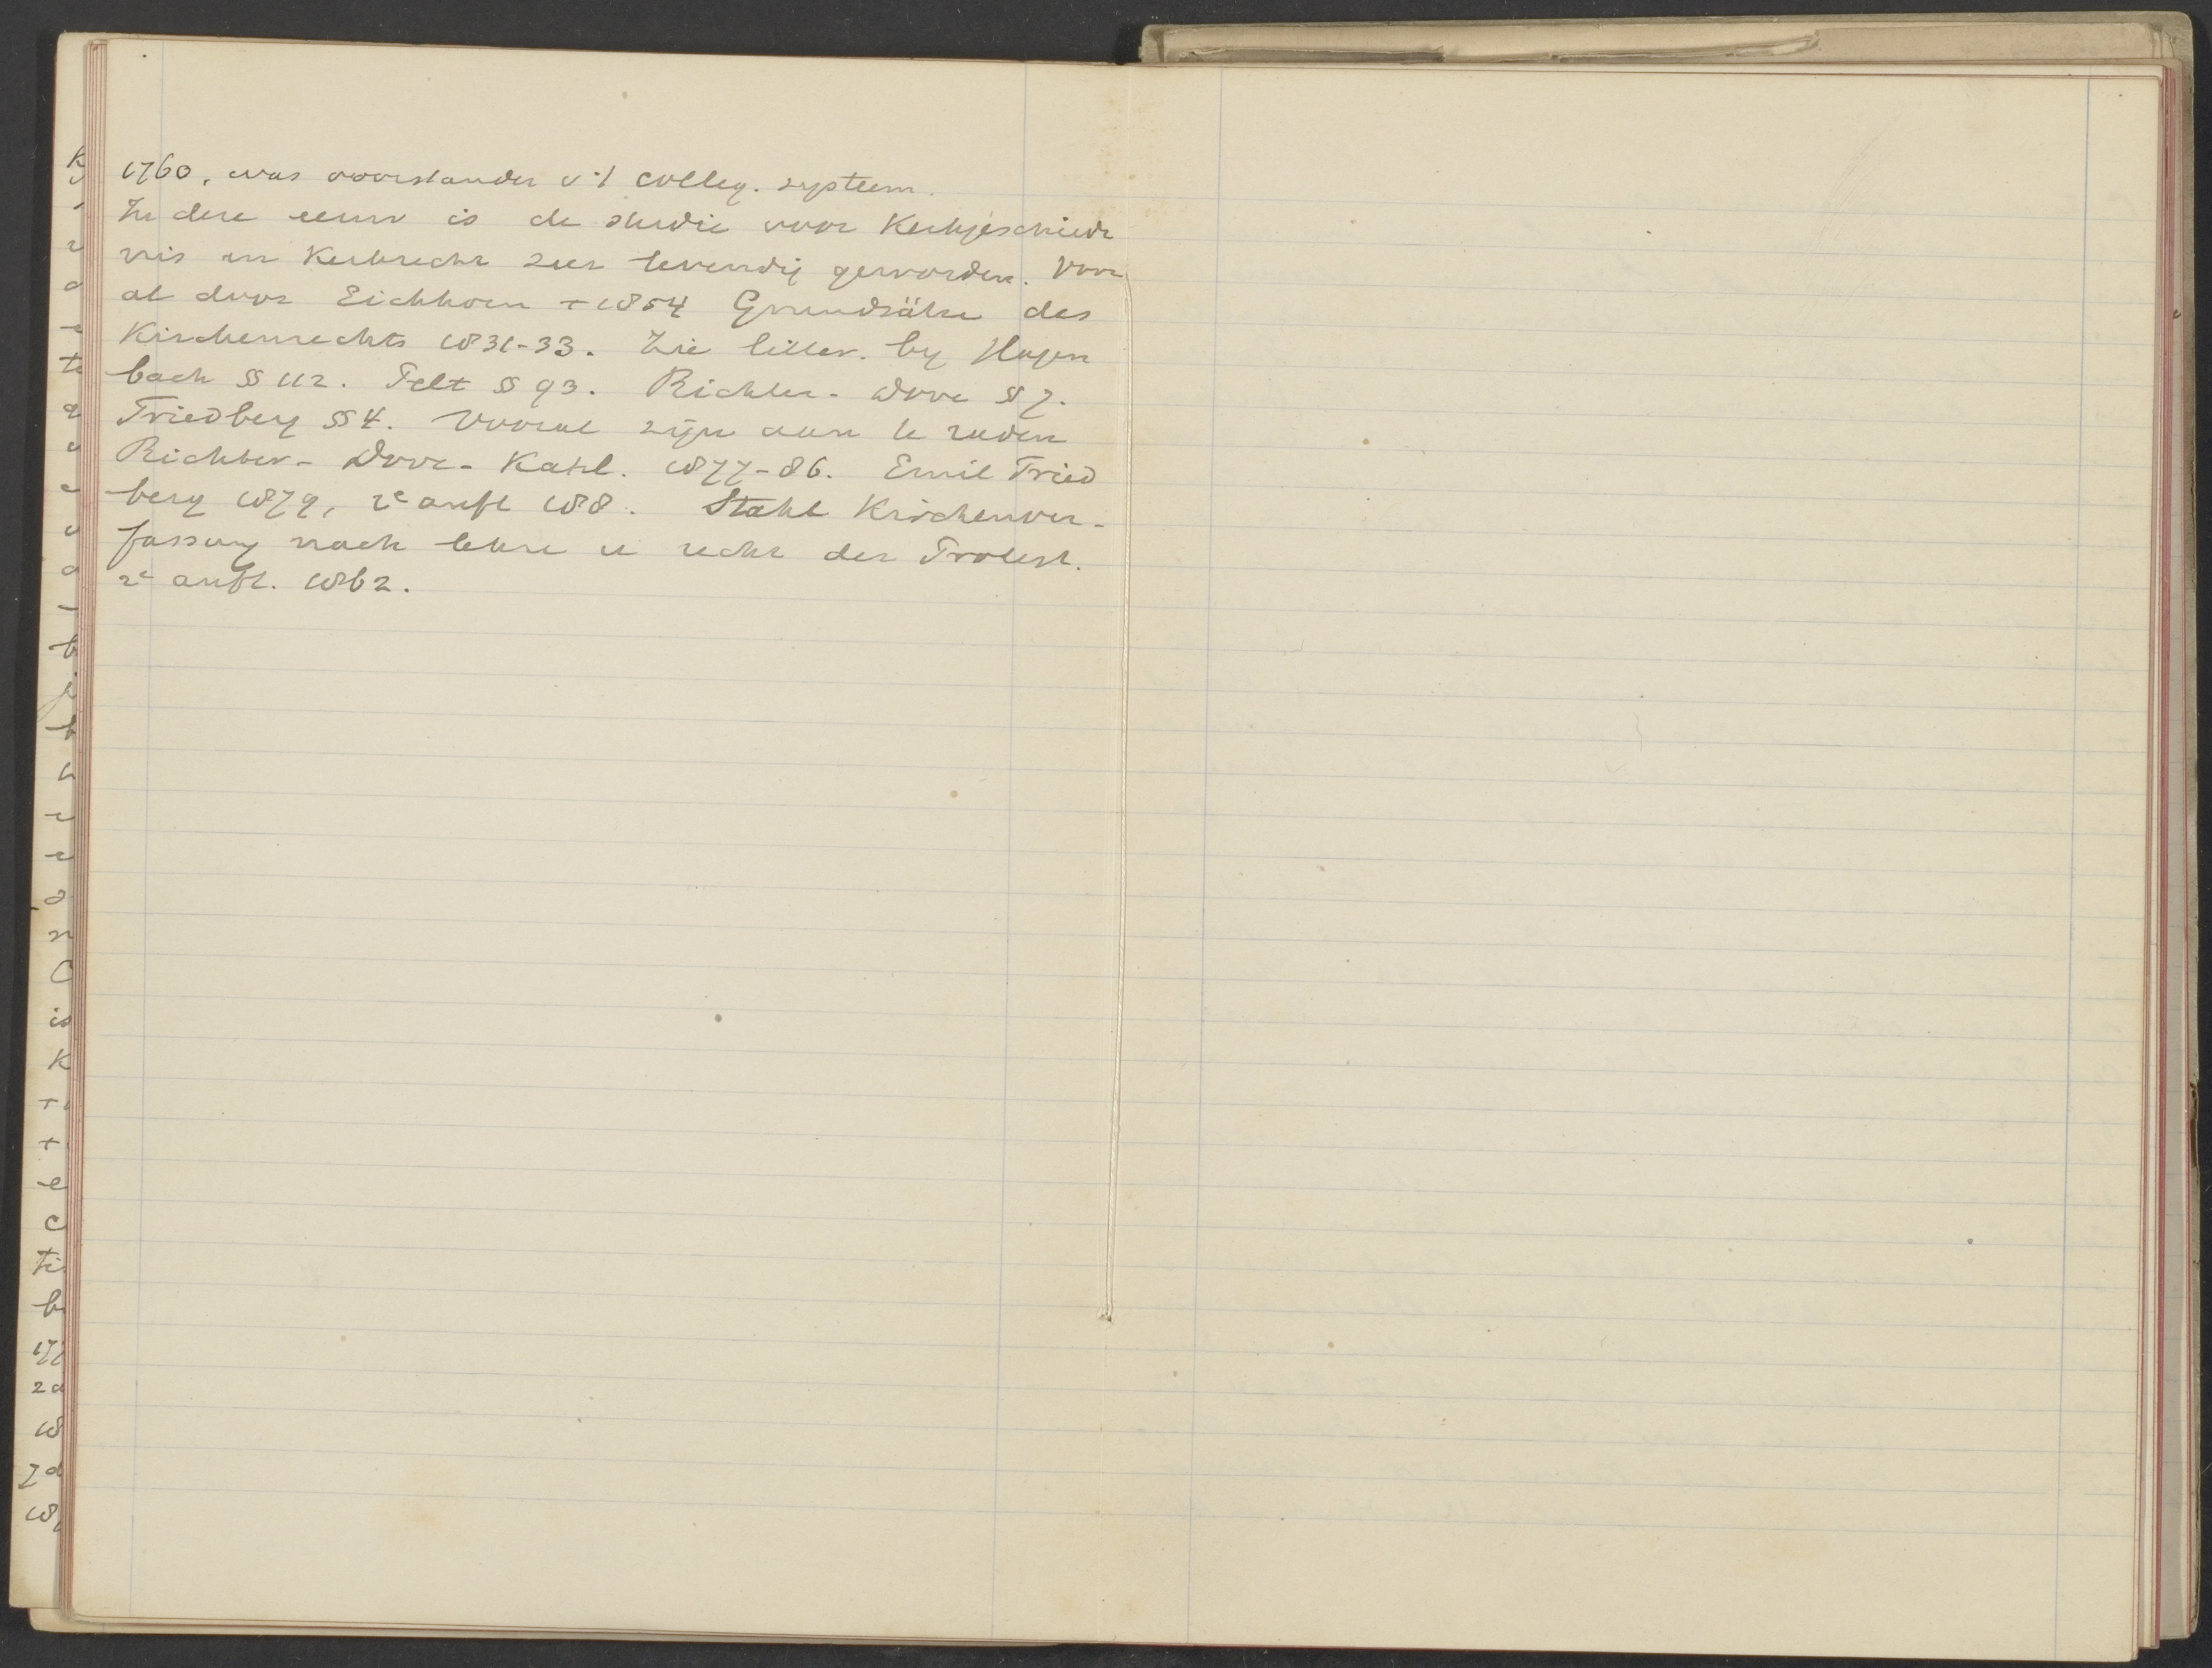 1760, was voorstander v. 't colleg. systeem.
In deze eeuw is de studie voor Kerkgeschied
nis en Kerkrecht zeer levendig geworden. Voor
al door Eichhorn + 1854 Grundsätze des
Kirchenrechts 1831-33. Zie litter. by Hagen
bach § 112. Pelt § 93. Richter - Dove § 7.
Friedberg § 4. Vooral zijn aan te raden
Richter - Dove - Kahl. 1877-86. Emil Fried
berg 1879, 2e aufl 188 . Stahl Kirchenver-
fassung nach lehre u recht der Protest.
2e aufl. 1862.